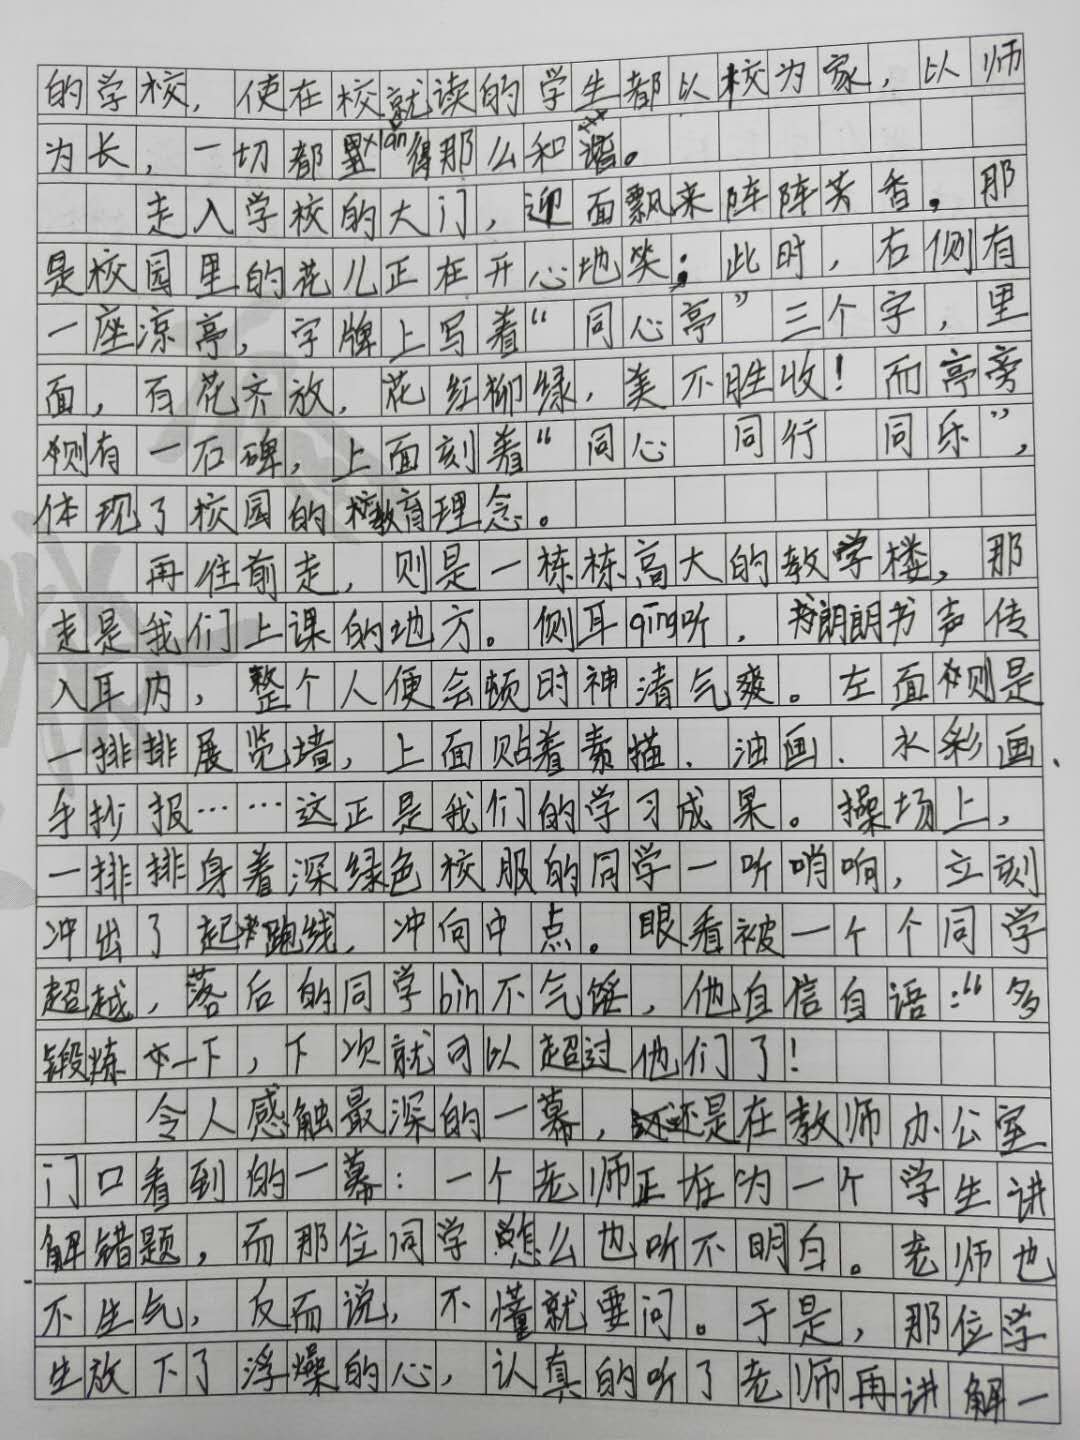 的学校，使在校就读的学生都以校为家，以师
为长，一切都xiǎn得那么和谐。
走入学校的大门，迎面飘来阵阵芳香，那
是校园里的花儿正在开心地笑；此时，右侧有
一座凉亭，字牌上写着“同心亭”三个字，里
面，百花齐放，花红柳绿，美不胜收！而亭旁
侧有一石碑，上面刻着“同心 同行 同乐”，
体现了校园的教育理念。
再往前走，则是一栋栋高大的教学楼，那
是我们上课的地方。侧耳qīng听，朗朗书声传
入耳内，整个人便会顿时神清气爽。左面则是
一排排展览墙，上面贴着素描、油画、水彩画、
手抄报……这正是我们的学习成果。操场上，
一排排身着深绿色校服的同学一听哨响，立刻
冲出了起跑线，冲向中点。眼看被一个个同学
超越，落后的同学bìn不气馁，他自信自语：“多
锻炼一下，下次就可以超过他们了！
令人感触最深的一幕，还是在教师办公室
门口看到的一幕：一个老师正在为一个学生讲
解错题，而那位同学怎么也听不明白。老师也
不生气，反而说，不懂就要问。于是，那位学
生放下了浮燥的心，认真的听了老师再讲解一